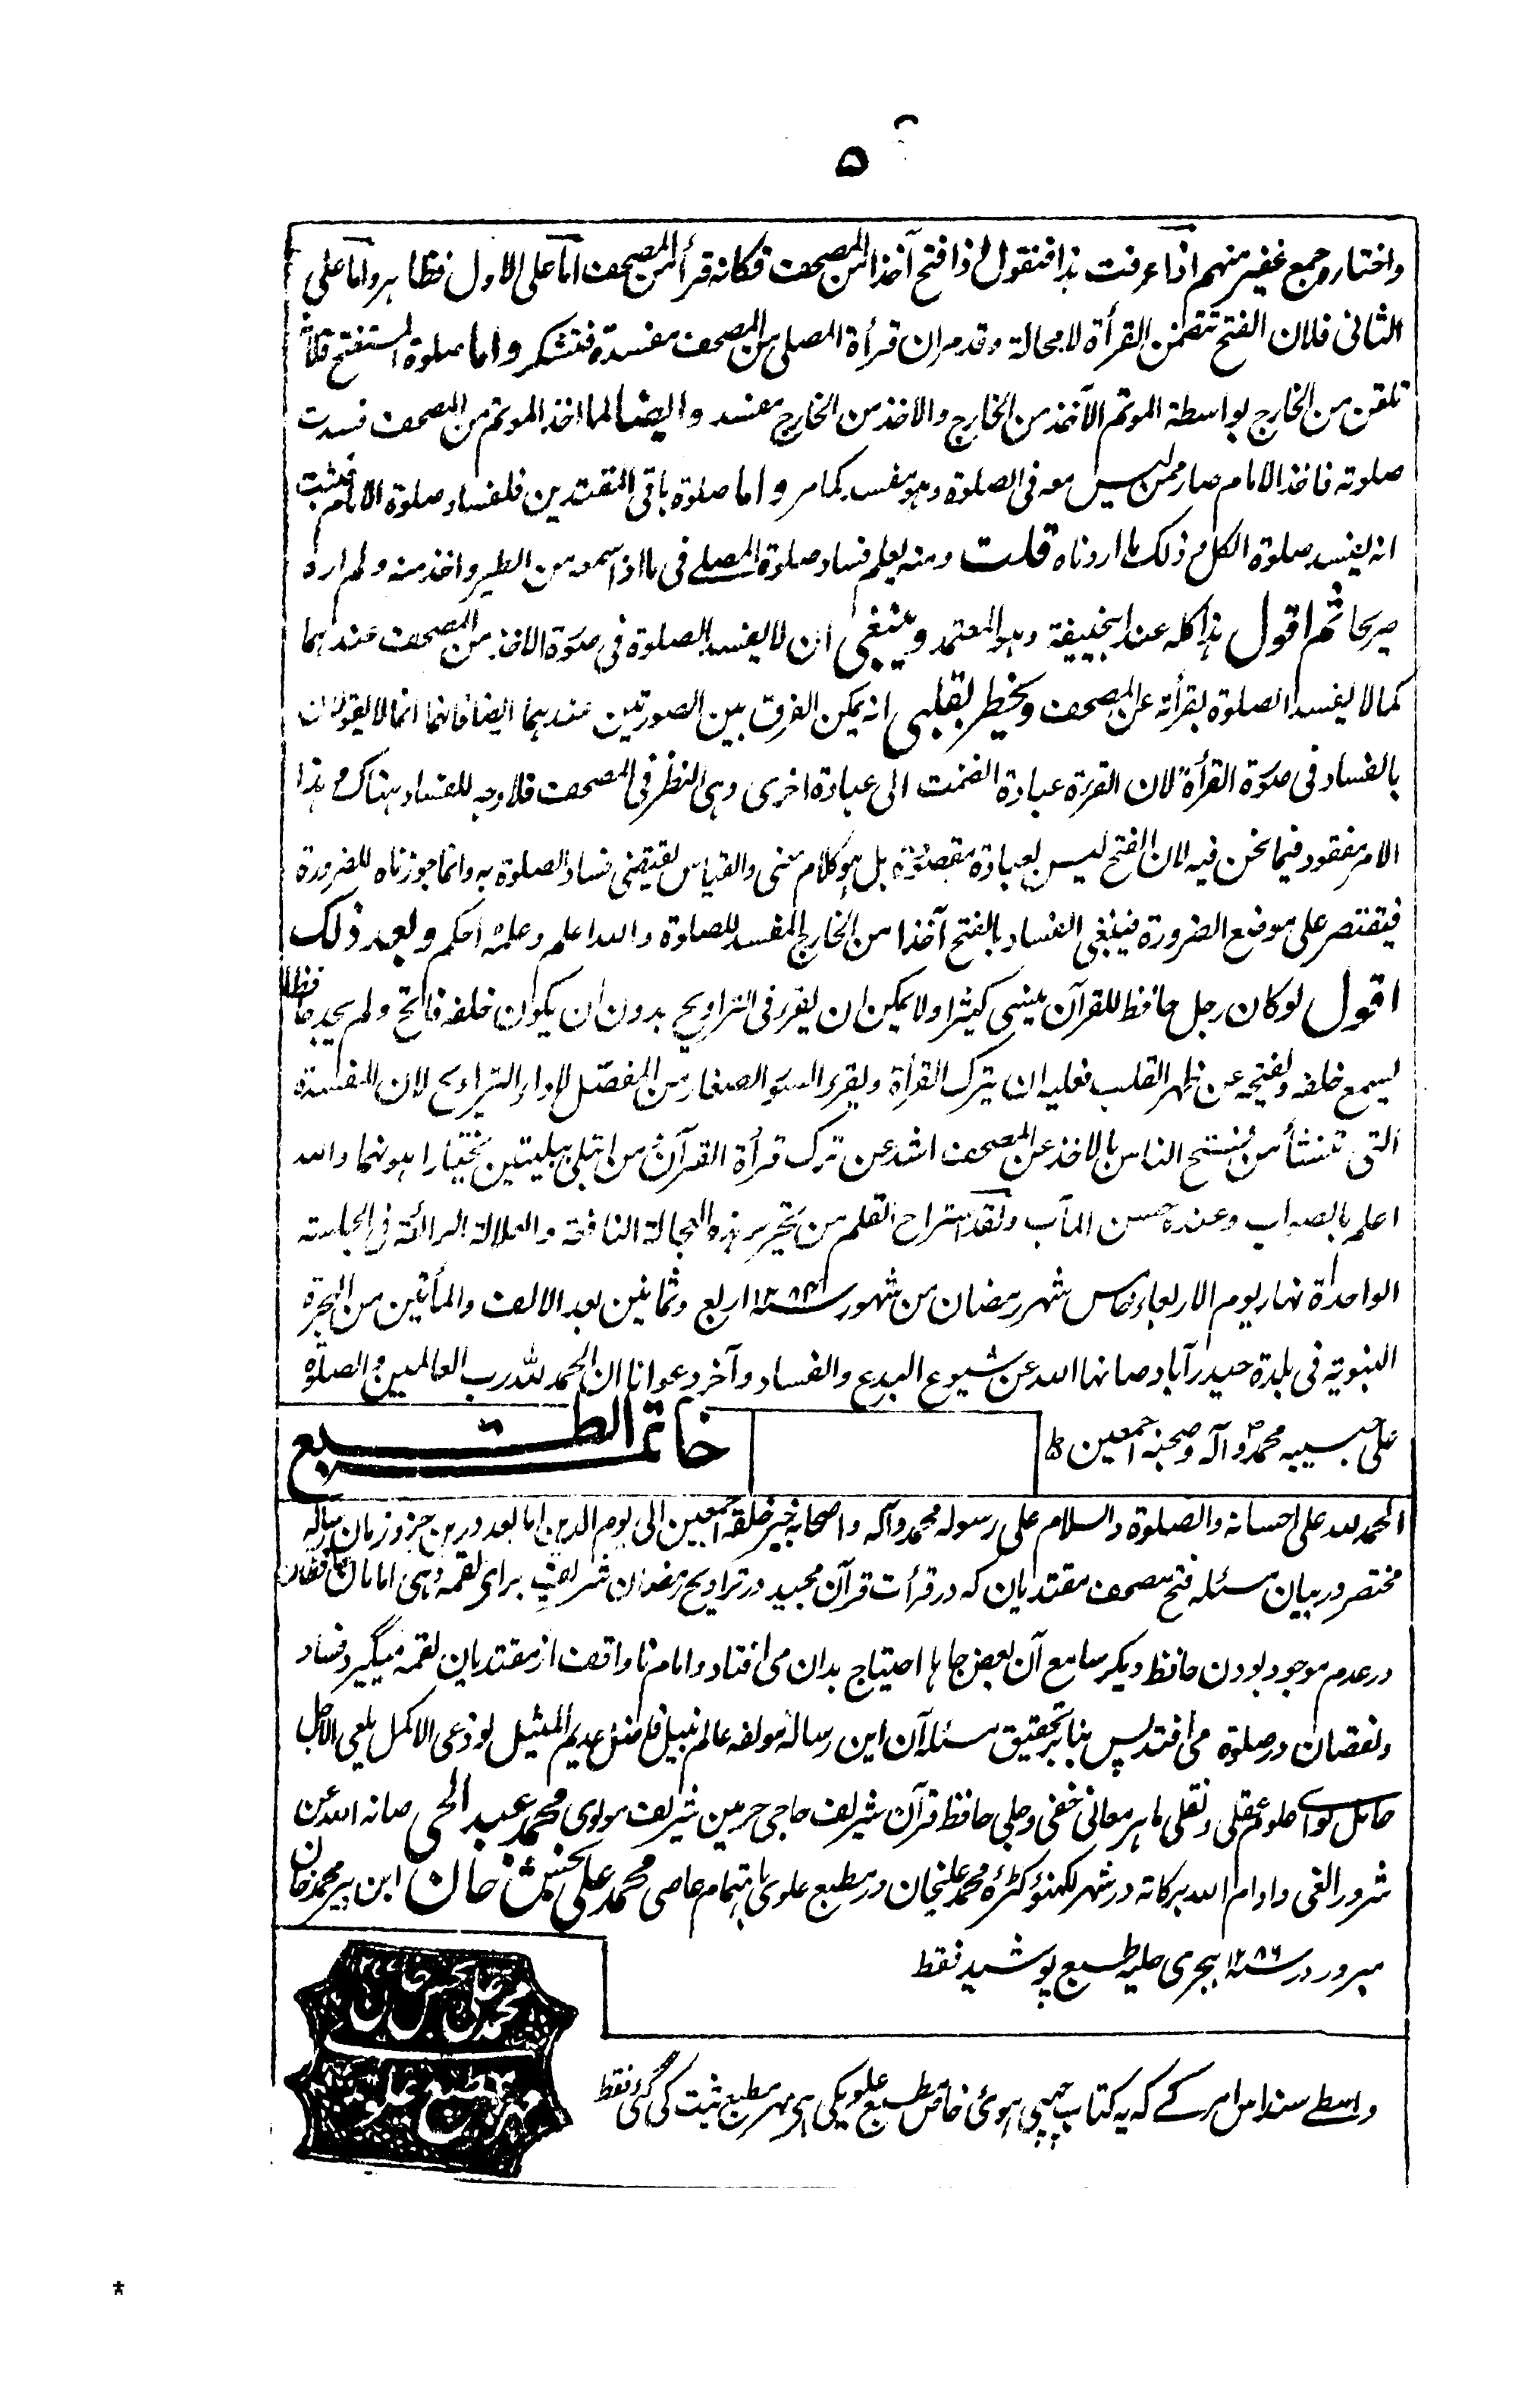 ۵
واختاره جمع غفير منهم اذا عرفت هذا فنقول اذا فتح آخذا من المصحف فكانه قرأ من المصحف اما على الاول فظاهر واما على
الثانى فلان الفتح تتضمن القرأة لا محالة وقد مر ان قرأة المصلى من المصحف مفسدة فتشكر واما صلوة المستفتح فلانه
تلقن من الخارج بواسطة الموتم الآخذ من الخارج والاخذ من الخارج مفسد وايضا لما اخذ الموتم من المصحف فسدت
صلوته فاخذ الامام صار ممن ليس معه فى الصلوة وهو مفسد كما مر واما صلوة باقى المقتدين فلفساد صلوة الامام فثبت
انه يفسد صلوة الكل و ذلك ما اردناه قلت ومنه يعلم فساد صلوة المصلے فى ما اذا سمعه من الطير واخذ منه ولم اره
صريحا ثم اقول هذا كله عند ابيحنيفة وهو المعتمد وينبغى ان لا يفسد الصلوة فى صورة الاخذ من المصحف عندهما
كما لا يفسد الصلوة بقرأته عن المصحف ويخطر بقلبى انه يمكن الفرق بين الصورتين عندهما ايضا فانهما انما لا يقولان
بالفساد فى صورة القرأة لان القرءة عبادة انضمت الى عبادة اخرى وهى النظر فى المصحف فلا وجه للفساد هناك و هذا
الامر مفقود فيما نحن فيه لان الفتح ليس بعبادة مقصودة بل هو كلام معنى والقياس يقتضى فساد الصلوة به وانما جوزناه للضرورة
فيقتصر على موضع الضرورة فينبغى الفساد بالفتح آخذا من الخارج المفسد للصلوة والله اعلم وعلمه احكم وبعد ذلك
اقول لو كان رجل حافظ للقرآن ينسى كثيرا ولا يمكن ان يقرء فى التراويح بدون ان يكون خلفه فاتح ولم يجد حافظا
ليسمع خلفه ويفتحه عن ظهر القلب فعليه ان يترك القرأة ويقرء السور الصغار من المفصل لاداء التراويح لان المفسدة
التى تنشأ من فتح الناس بالاخذ عن المصحف اشد عن ترك قرأة القرآن من ابتلى ببليتين يختار اهونهما والله
اعلم بالصواب وعنده حسن المآب ولقد استراح القلم من تحرير هذه العجالة النافعة والعلالة الرائقة فى الجلسة
الواحدة نهار يوم الاربعاء خامس شهر رمضان من شهور سنه ۱۲۸۴ اربع وثمانين بعد الالف والمأتين من الهجرة
النبوية فى بلدة حيدرآباد صانها الله عن شيوع البدع والفساد وآخر دعوانا ان الحمد لله رب العالمين و الصلوة
على حبيبه محمد و آله وصحبه اجمعين
خاتمة الطبع
الحمد لله على احسانه والصلوة والسلام على رسوله محمد وآله واصحابه خير خلقه اجمعين الى يوم الدين اما بعد درين جزو زمان رساله
مختصر در بيان مسئله فتح مصحف مقتديان كه در قرأت قرآن مجيد در تراويح رمضان شريف براى لقمه دهى امامان
در عدم موجود بودن حافظ ديكر سامع آن بعض جاها احتياج بدان مى افتاد و امام ناواقف از مقتديان لقمه ميگيرد فساد
ونقصان در صلوة مى افتد پس بنابر تحقيق مسئله آن اين رساله مولفه عالم نبيل فاضل عديم المثيل لوذعى الاكمل يلمعى الاجل
حامل لواے علوم عقلى و نقلى ماهر معانى خفى وجلى حافظ قرآن شريف حاجى حرمين شريف مولوى محمد عبد الحى صانه الله عن
شرور الغى وادام الله بركاته در شهر لكهنؤ كٹرہ محمد عليخان در مطبع علوى باهتمام عاصى محمد على بخش خان ابن پير محمد خان
مبرور در سنه ۱۲۸۶ هجرى حليه طبع پوشيد فقط
واسطے سند اس امر کے کہ یہ کتاب چھپی ہوئی خاص مطبع علوی کی ہی مہر مطبع ثبت کی گئی فقط
محمد على بخش خان
*